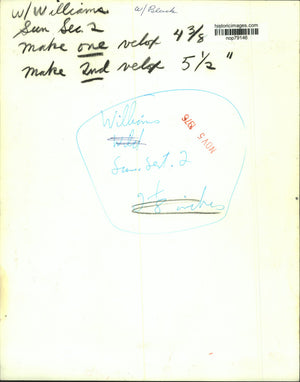 w/Williams
w/Black
Sun Sec 2
make one velox 4 3/8
make 2nd velox 5 1/2"
historicimages.com
nop79146
Williams
NOV 5 1978
Sun. Sect. 2
inches